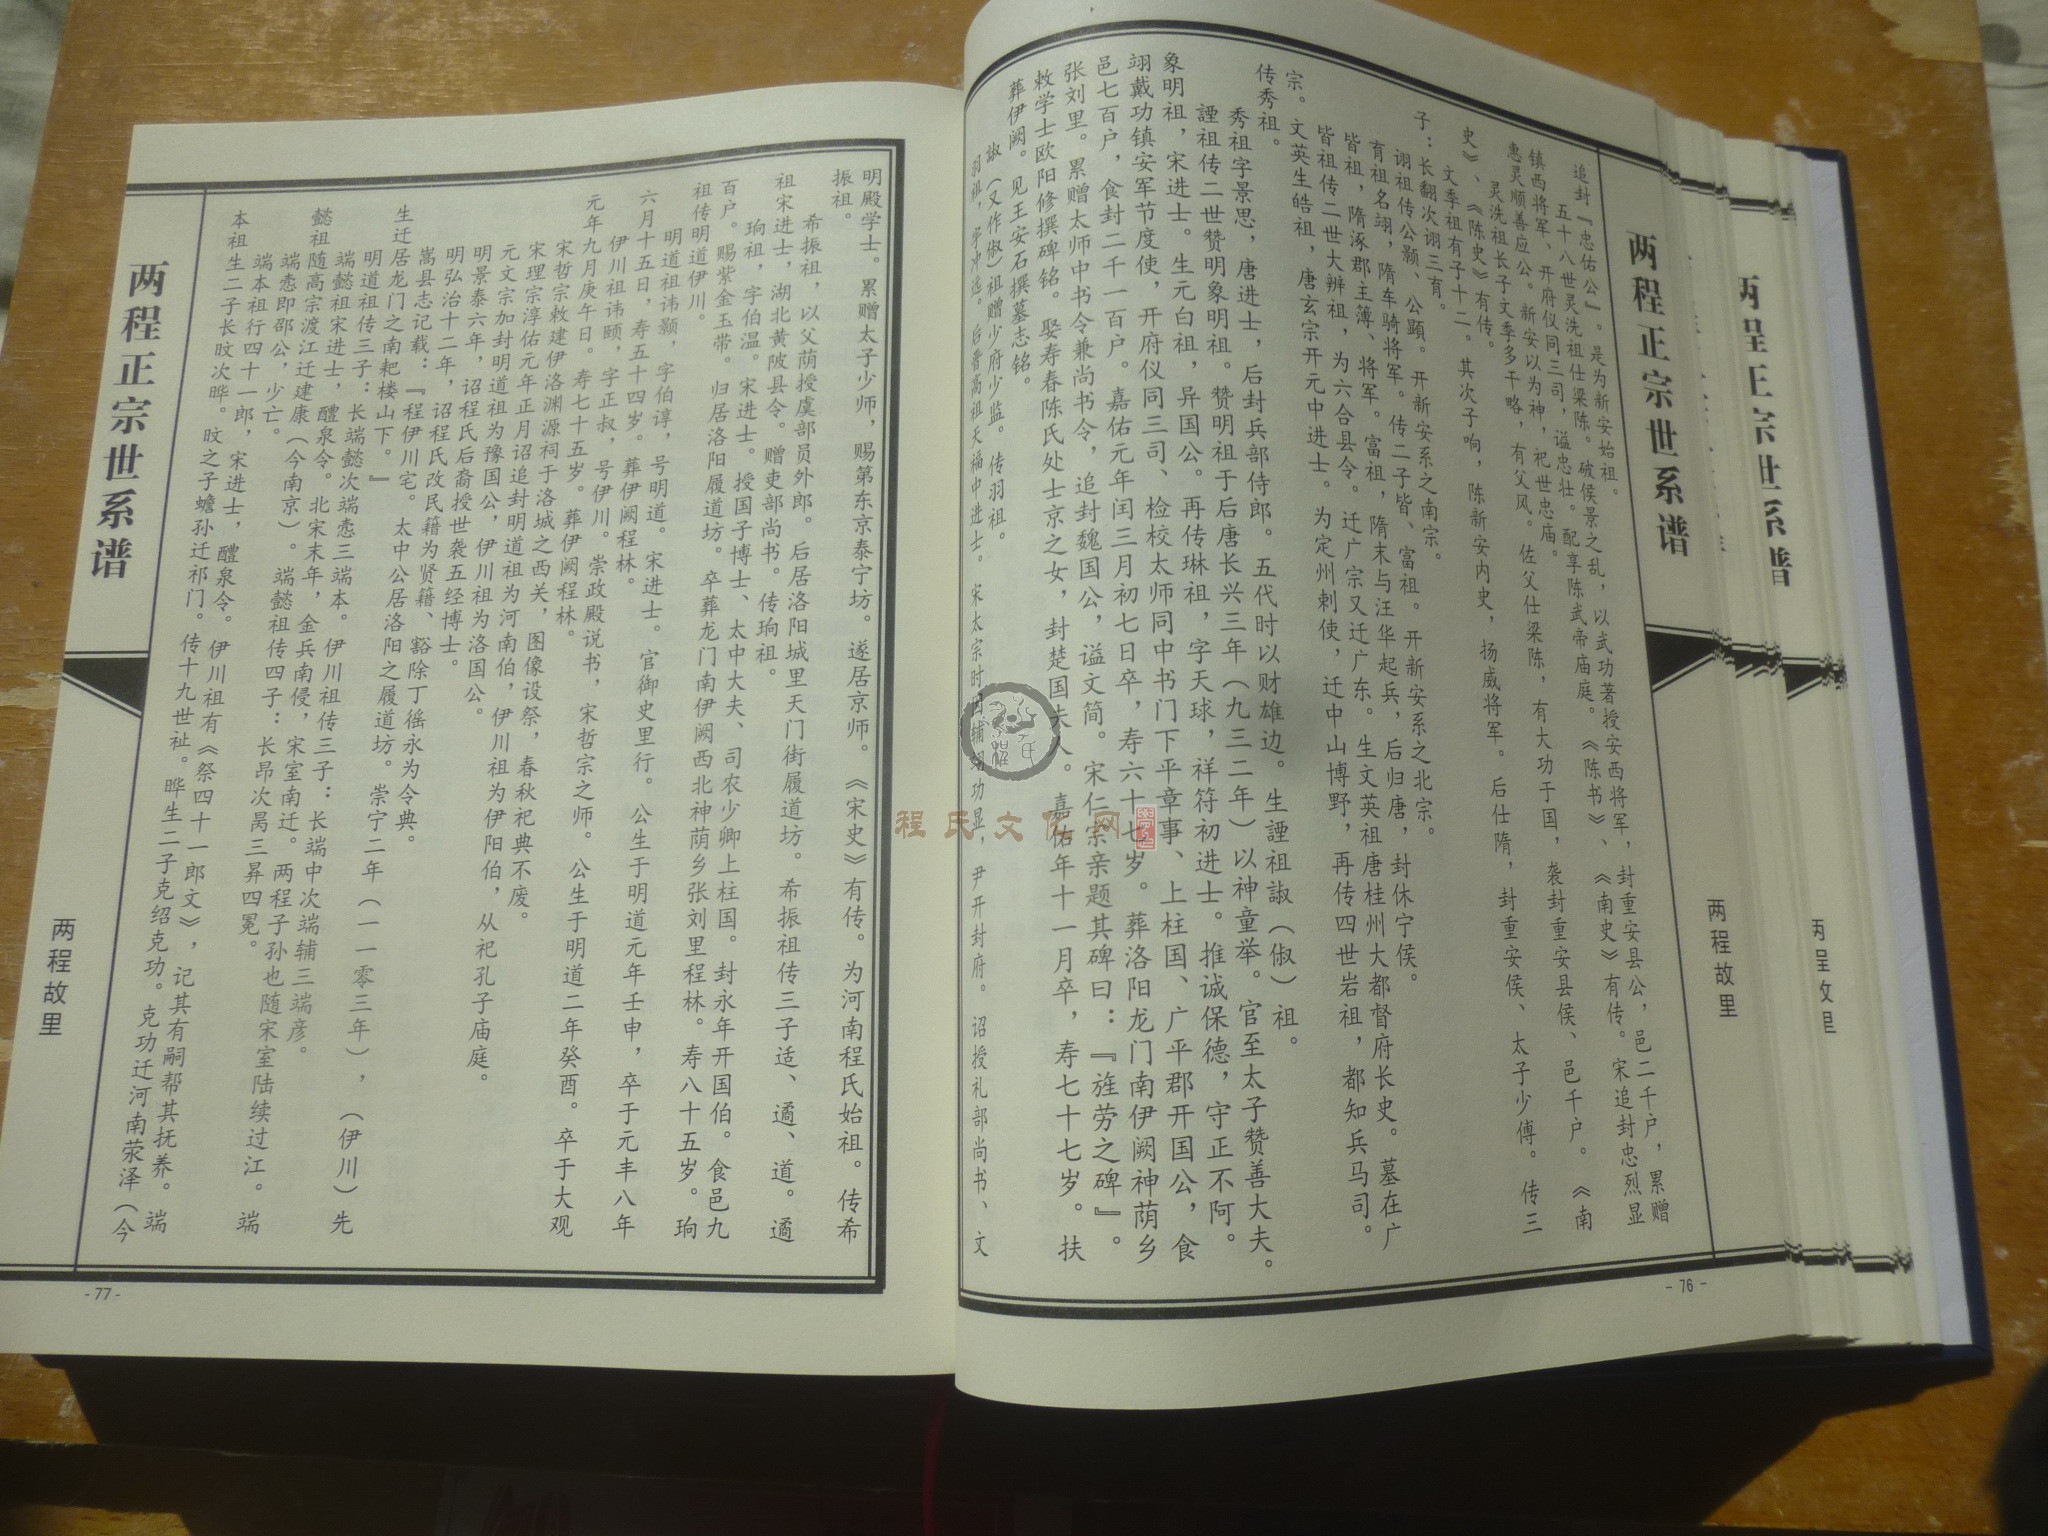 两程正宗世系谱
两程故里
两程正宗世系谱
两程故里
追封『忠佑公』。是为新安始祖。
五十八世灵洗祖仕梁陈。破侯景之乱，以武功著授安西将军，封重安县公，邑二千户，累赠
镇西将军、开府仪同三司，谥忠壮。配享陈武帝庙庭。《陈书》、《南史》有传。宋追封忠烈显
惠灵顺善应公。新安以为神，祀世忠庙。
灵洗祖长子文季多干略，有父风。佐父仕梁陈，有大功于国，袭封重安县侯、邑千户。《南
史》、《陈史》有传。
文季祖有子十二。其次子响，陈新安内史，扬威将军。后仕隋，封重安侯、太子少傅。传三
子：长翻次诩三育。
诩祖传公颢、公顕。开新安系之南宗。
育祖名翊，隋车骑将军。传二子皆、富祖。开新安系之北宗。
皆祖，隋涿郡主簿、将军。富祖，隋末与汪华起兵，后归唐，封休宁侯。
皆祖传二世大辨祖，为六合县令。迁广宗又迁广东。生文英祖唐桂州大都督府长史。墓在广
宗。文英生皓祖，唐玄宗开元中进士。为定州刺使，迁中山博野，再传四世岩祖，都知兵马司。
传秀祖。
秀祖字景思，唐进士，后封兵部侍郎。五代时以财雄边。生諲祖諔（俶）祖。
諲祖传二世赞明象明祖。赞明祖于后唐长兴三年（九三二年）以神童举。官至太子赞善大夫。
象明祖，宋进士。生元白祖，异国公。再传琳祖，字天球，祥符初进士。推诚保德，守正不阿。
翊戴功镇安军节度使，开府仪同三司、检校太师同中书门下平章事、上柱国、广平郡开国公，食
邑七百户，食封二千一百户。嘉佑元年闰三月初七日卒，寿六十七岁。葬洛阳龙门南伊阙神荫乡
张刘里。累赠太师中书令兼尚书令，追封魏国公，谥文简。宋仁宗亲题其碑曰：『旌劳之碑』。
敕学士欧阳修撰碑铭。娶寿春陈氏处士京之女，封楚国夫人。嘉佑年十一月卒，寿七十七岁。扶
葬伊阙。见王安石撰墓志铭。
諔（又作俶）祖赠少府少监。传羽祖。
羽祖，字冲远。后晋高祖天福中进士。宋太宗时因辅翊功显，尹开封府。诏授礼部尚书、文
- 76 -
明殿学士。累赠太子少师，赐第东京泰宁坊。遂居京师。《宋史》有传。为河南程氏始祖。传希
振祖。
希振祖，以父荫授虞部员外郎。后居洛阳城里天门街履道坊。希振祖传三子适、遹、道。遹
祖宋进士，湖北黄陂县令。赠吏部尚书。传珦祖。
珦祖，字伯温。宋进士。授国子博士、太中大夫、司农少卿上柱国。封永年开国伯。食邑九
百户。赐紫金玉带。归居洛阳履道坊。卒葬龙门南伊阙西北神荫乡张刘里程林。寿八十五岁。珦
祖传明道伊川。
明道祖讳颢，字伯淳，号明道。宋进士。官御史里行。公生于明道元年壬申，卒于元丰八年
六月十五日，寿五十四岁。葬伊阙程林。
伊川祖讳颐，字正叔，号伊川。崇政殿说书，宋哲宗之师。公生于明道二年癸酉。卒于大观
元年九月庚午日。寿七十五岁。葬伊阙程林。
宋哲宗敕建伊洛渊源祠于洛城之西关，图像设祭，春秋祀典不废。
宋理宗淳佑元年正月诏追封明道祖为河南伯，伊川祖为伊阳伯，从祀孔子庙庭。
元文宗加封明道祖为豫国公，伊川祖为洛国公。
明景泰六年，诏程氏后裔授世袭五经博士。
明弘治十二年，诏程氏改民籍为贤籍、豁除丁徭永为令典。
嵩县志记载：『程伊川宅。太中公居洛阳之履道坊。崇宁二年（一一零三年），（伊川）先
生迁居龙门之南耙楼山下。』
明道祖传三子：长端懿次端悫三端本。伊川祖传三子：长端中次端辅三端彦。
端懿祖宋进士，醴泉令。北宋末年，金兵南侵，宋室南迁。两程子孙也随宋室陆续过江。端
懿祖随高宗渡江迁建康（今南京）。端懿祖传四子：长昂次昺三昇四冕。
端悫即邵公，少亡。
端本祖行四十一郎，宋进士，醴泉令。伊川祖有《祭四十一郎文》，记其有嗣帮其抚养。端
本祖生二子长旼次晔。旼之子蟾孙迁祁门。传十九世祉。晔生二子克绍克功。克功迁河南荥泽（今
两程正宗世系谱
两程故里
- 77 -
程氏文化网